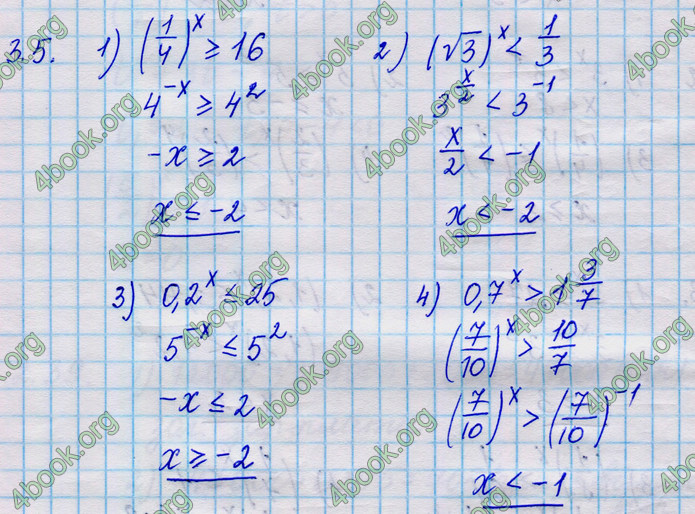 3.5. 1) (1/4)^x ≥ 16
4^-x ≥ 4^2
-x ≥ 2
x ≤ -2
2) (√3)^x < 1/3
3^x/2 < 3^-1
x/2 < -1
x < -2
3) 0,2^x ≤ 25
5^-x ≤ 5^2
-x ≤ 2
x ≥ -2
4) 0,7^x > 1 3/7
(7/10)^x > 10/7
(7/10)^x > (7/10)^-1
x < -1
4book.org